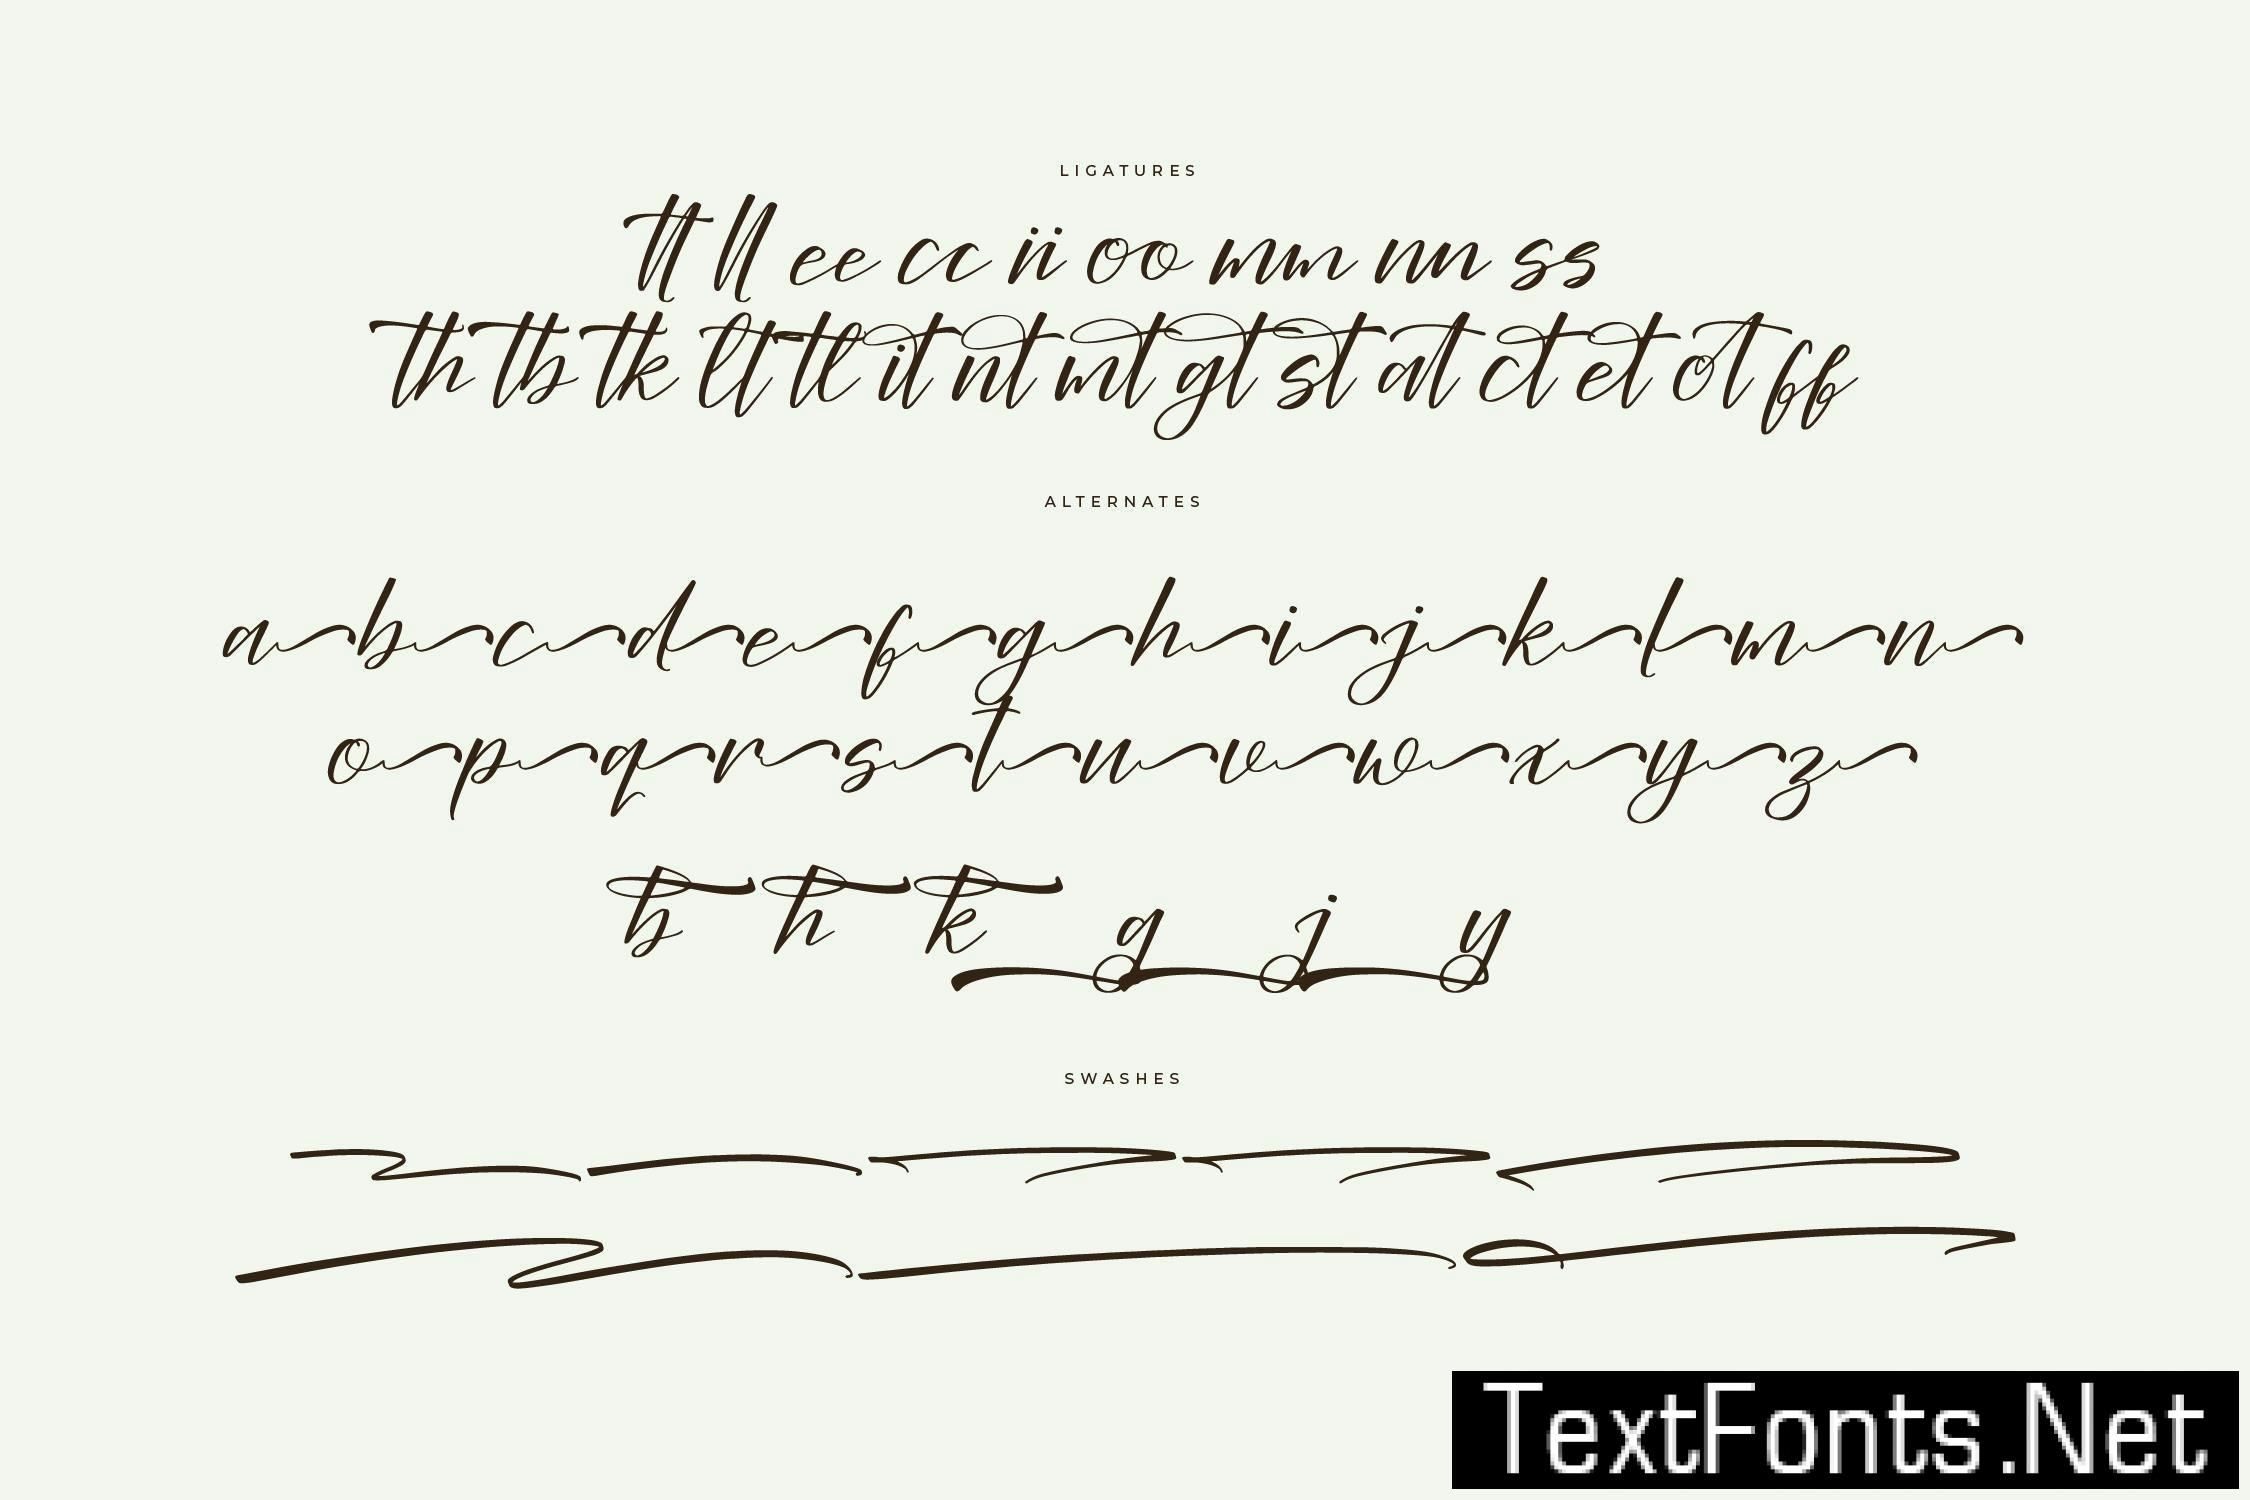 LIGATURES
tt ll ee cc ii oo mm nn ss
th tb tk lt tl it nt mt gt st at ct et ot ff
ALTERNATES
a b c d e f g h i j k l m n
o p q r s t u v w x y z
b h k g j y
SWASHES
TextFonts.Net